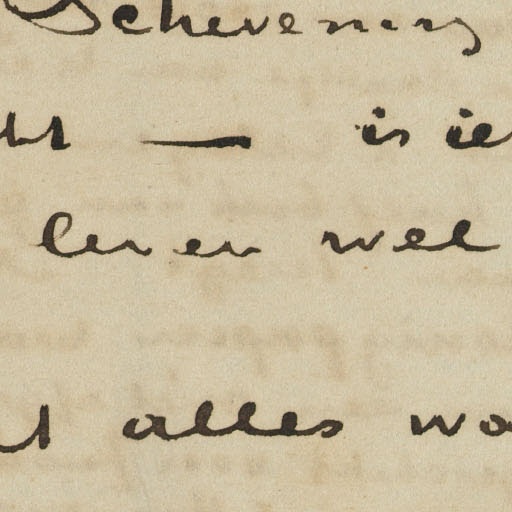 Schevening
— is ie
leven wel
alles wa